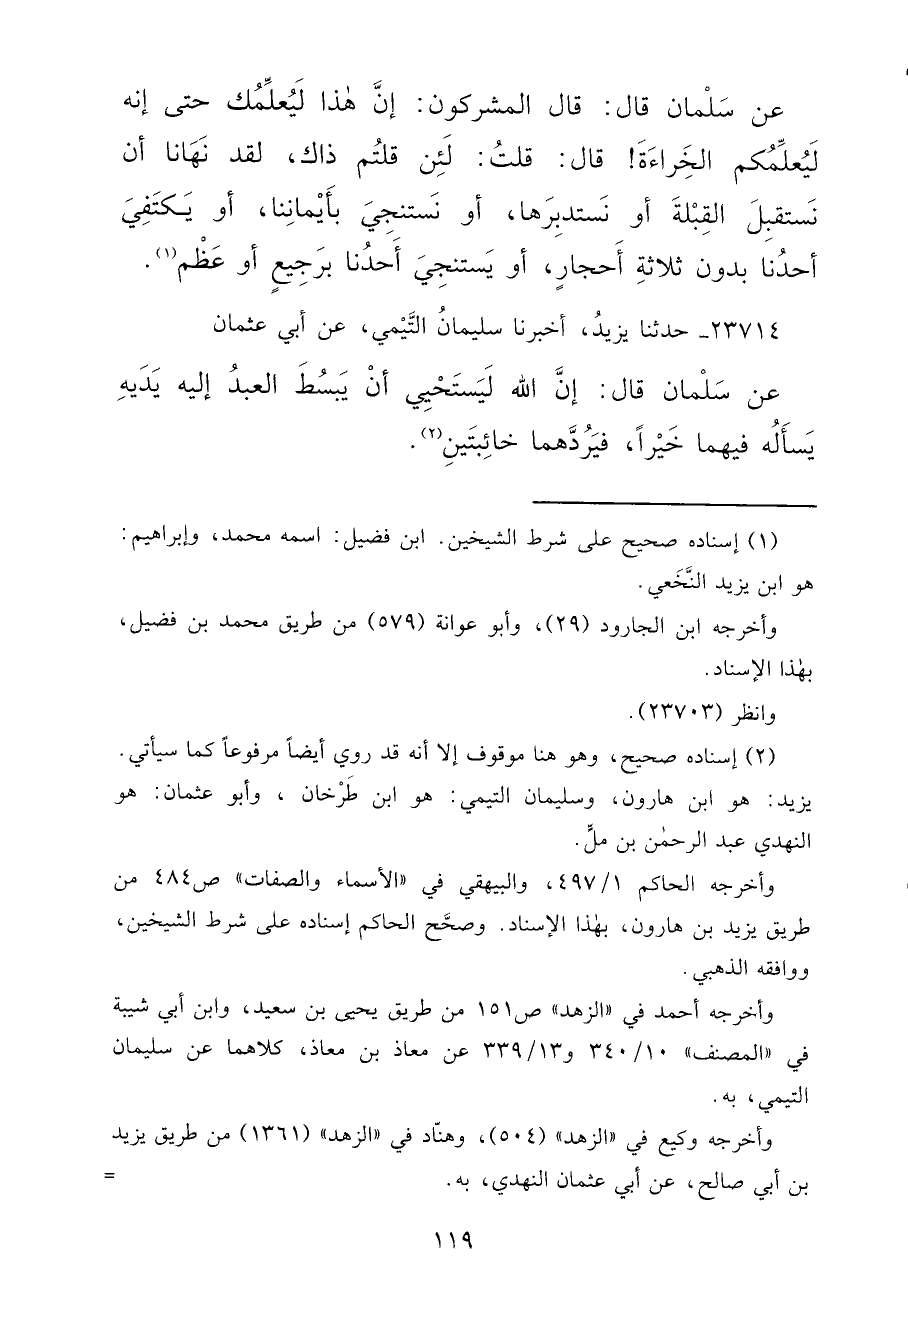 عن سَلْمان قال: قال المشركون: إنَّ هٰذا لَيُعلِّمُك حتى إنه
لَيُعلِّمُكم الخِراءَةَ! قال: قلتُ: لَئِن قلتُم ذاك، لقد نَهَانا أن
نَستقبِلَ القِبْلةَ أو نَستدبِرَها، أو نَستنجِيَ بأَيْمانِنا، أو يَكتَفِيَ
أحدُنا بدون ثلاثةِ أَحجارٍ، أو يَستنجِيَ أَحدُنا برَجِيعٍ أو عَظْم(١).
٢٣٧١٤ـ حدثنا يزيدُ، أخبرنا سليمانُ التَّيْمي، عن أبي عثمان
عن سَلْمان قال: إنَّ الله لَيَستَحْيِي أنْ يَبسُطَ العبدُ إليه يَدَيهِ
يَسأَلُه فيهما خَيْراً، فيَرُدَّهما خائِبتَينِ(٢).
(١) إسناده صحيح على شرط الشيخين. ابن فضيل: اسمه محمد، وإبراهيم:
هو ابن يزيد النَّخَعي.
وأخرجه ابن الجارود (٢٩)، وأبو عوانة (٥٧٩) من طريق محمد بن فضيل،
بهٰذا الإسناد.
وانظر (٢٣٧٠٣).
(٢) إسناده صحيح، وهو هنا موقوف إلا أنه قد روي أيضاً مرفوعاً كما سيأتي.
يزيد: هو ابن هارون، وسليمان التيمي: هو ابن طَرْخان ، وأبو عثمان: هو
النهدي عبد الرحمٰن بن ملٍّ.
وأخرجه الحاكم ٤٩٧/١، والبيهقي في «الأسماء والصفات» ص٤٨٤ من
طريق يزيد بن هارون، بهٰذا الإسناد. وصحَّح الحاكم إسناده على شرط الشيخين،
ووافقه الذهبي.
وأخرجه أحمد في «الزهد» ص١٥١ من طريق يحيى بن سعيد، وابن أبي شيبة
في «المصنف» ٣٤٠/١٠ و٣٣٩/١٣ عن معاذ بن معاذ، كلاهما عن سليمان
التيمي، به.
وأخرجه وكيع في «الزهد» (٥٠٤)، وهنّاد في «الزهد» (١٣٦١) من طريق يزيد
بن أبي صالح، عن أبي عثمان النهدي، به. =
١١٩